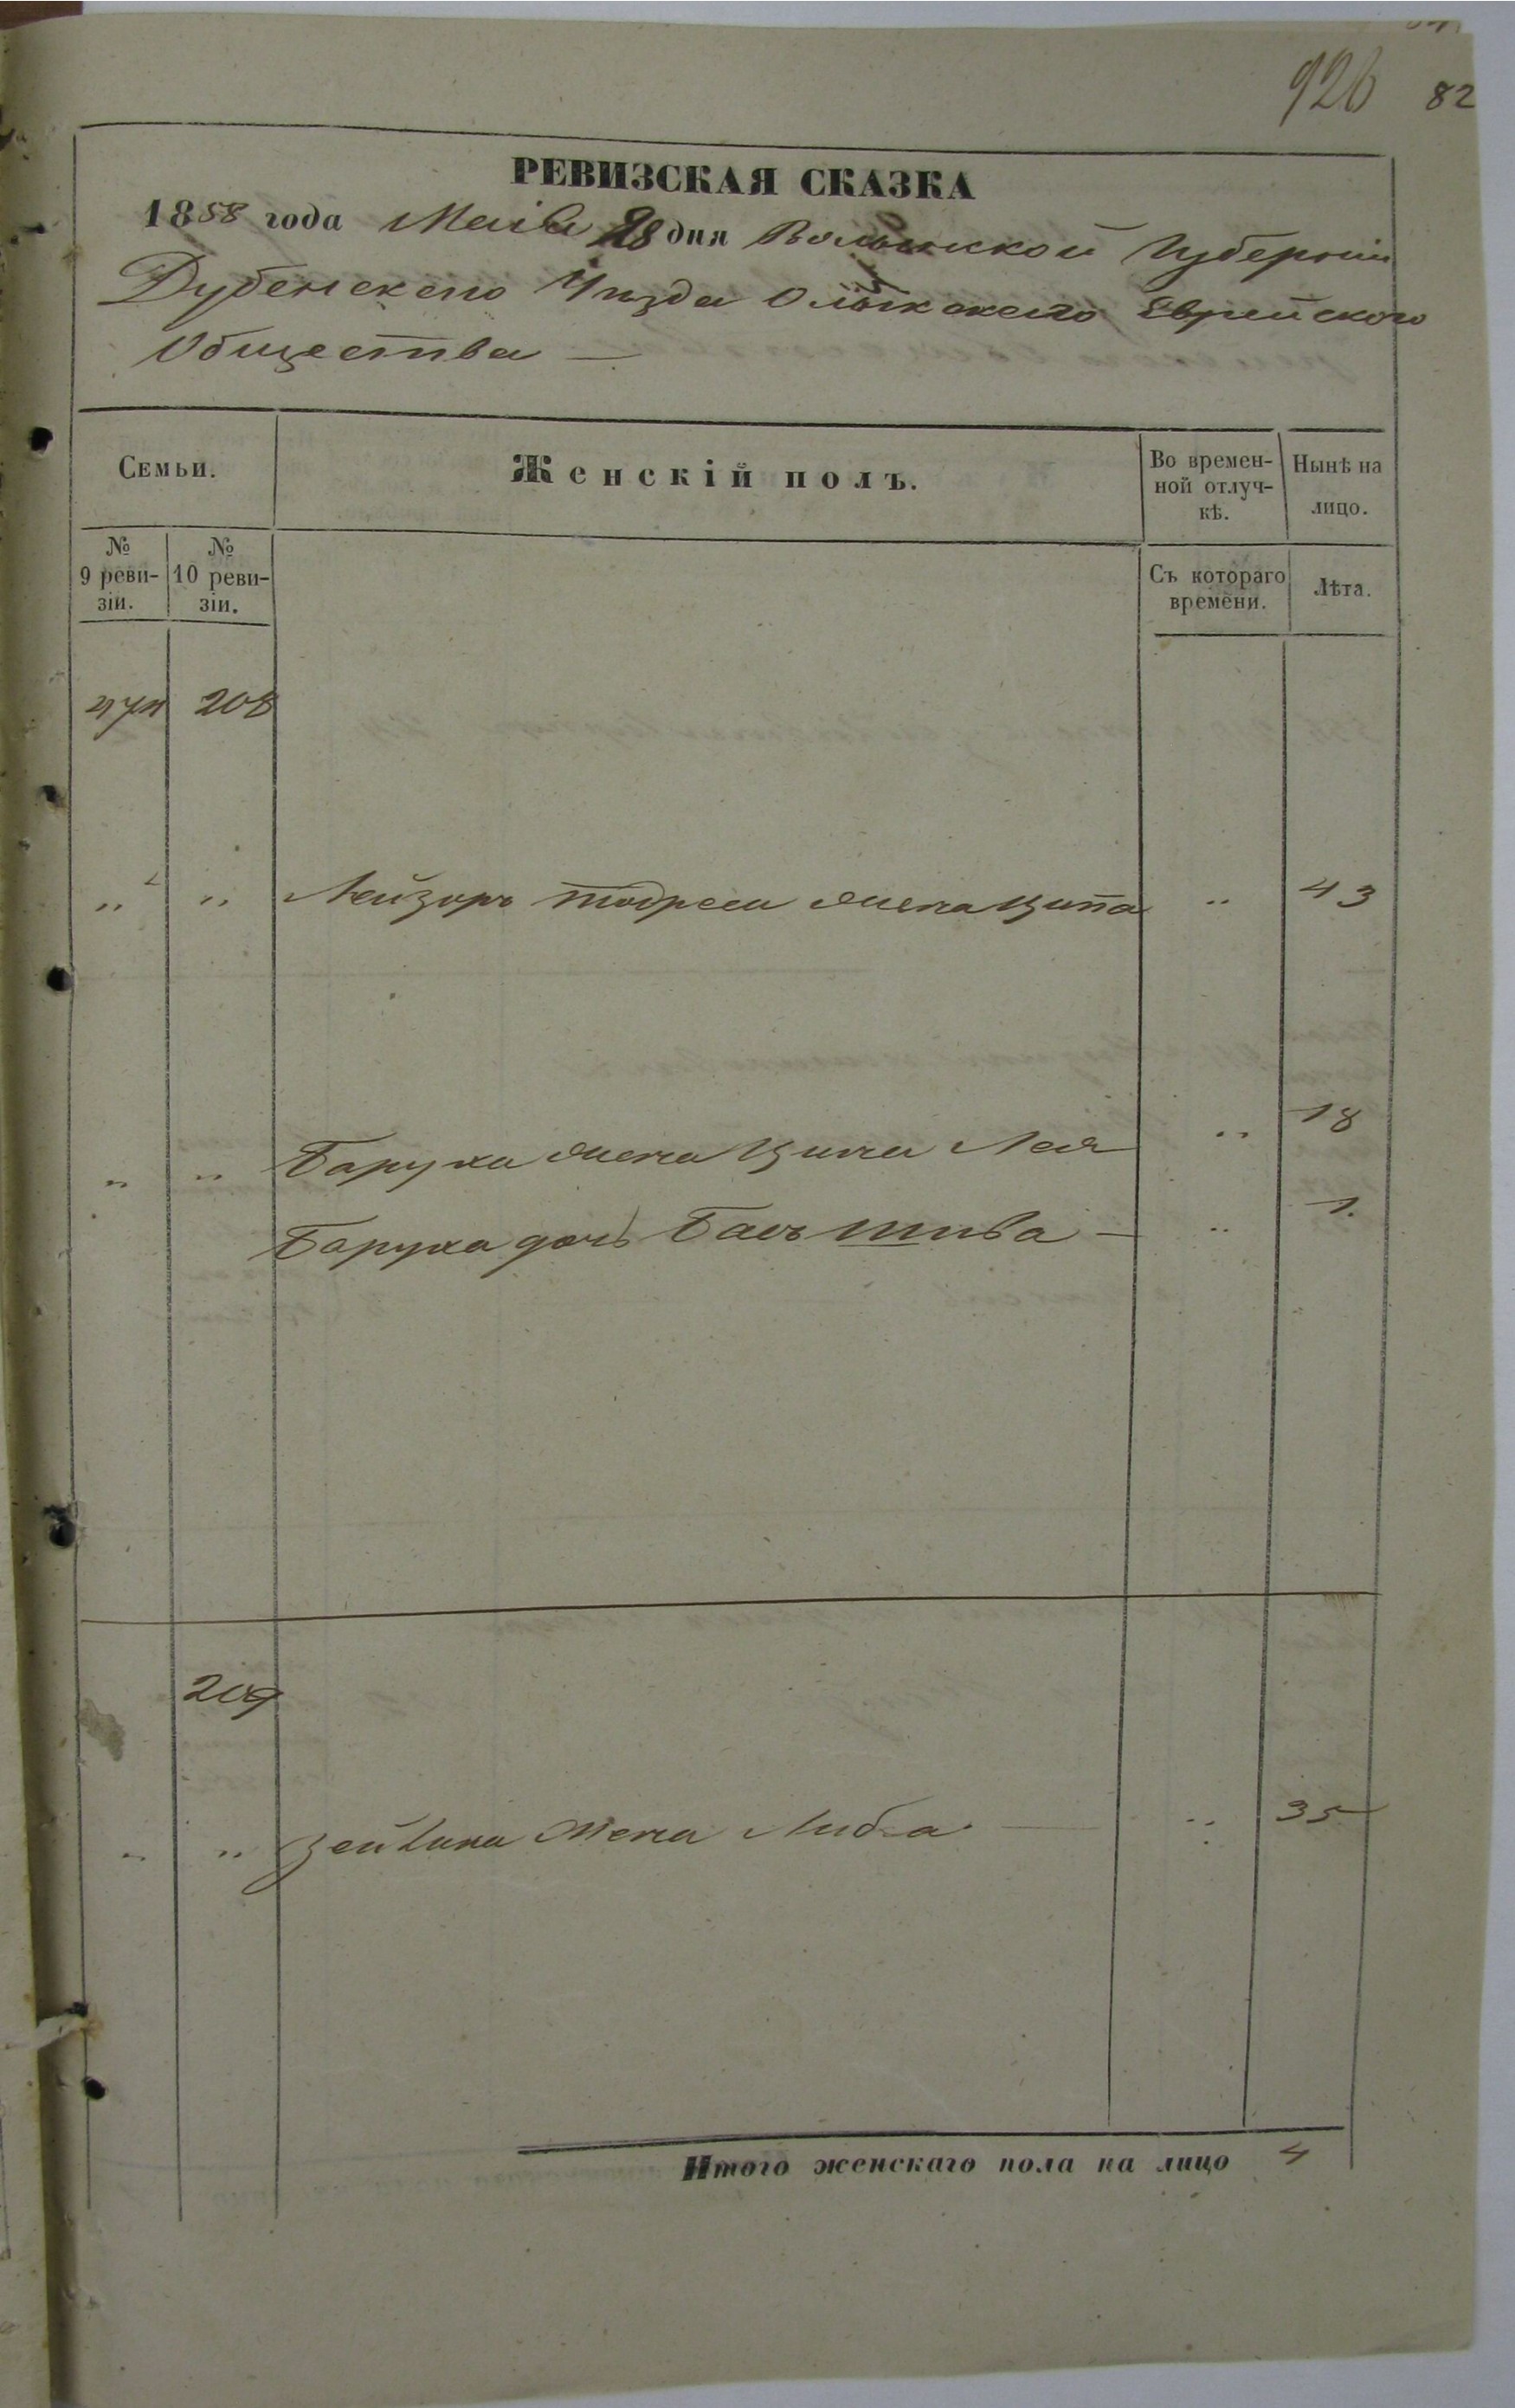 926 82
РЕВИЗСКАЯ СКАЗКА
1858 года Маія 28 дня Волынской Губерніи
Дубенскаго Уѣзда Олыкскаго Еврейского
Общества —
Семьи. Женскій полъ. Во времен- Нынѣ на
ной отлуч- лицо.
кѣ.
№ №
9 реви- 10 реви- Съ котораго Лѣта.
зіи. зіи. времени.
208
„ „ Лейзоръ Тодреса жена Ципа „ 43
„ „ Баруха жена Лея „ 18
Баруха дочь Бась Шива — „ 1.
209
„ „ Зейлика Жена Либа — „ 35
Итого женскаго пола на лицо 4